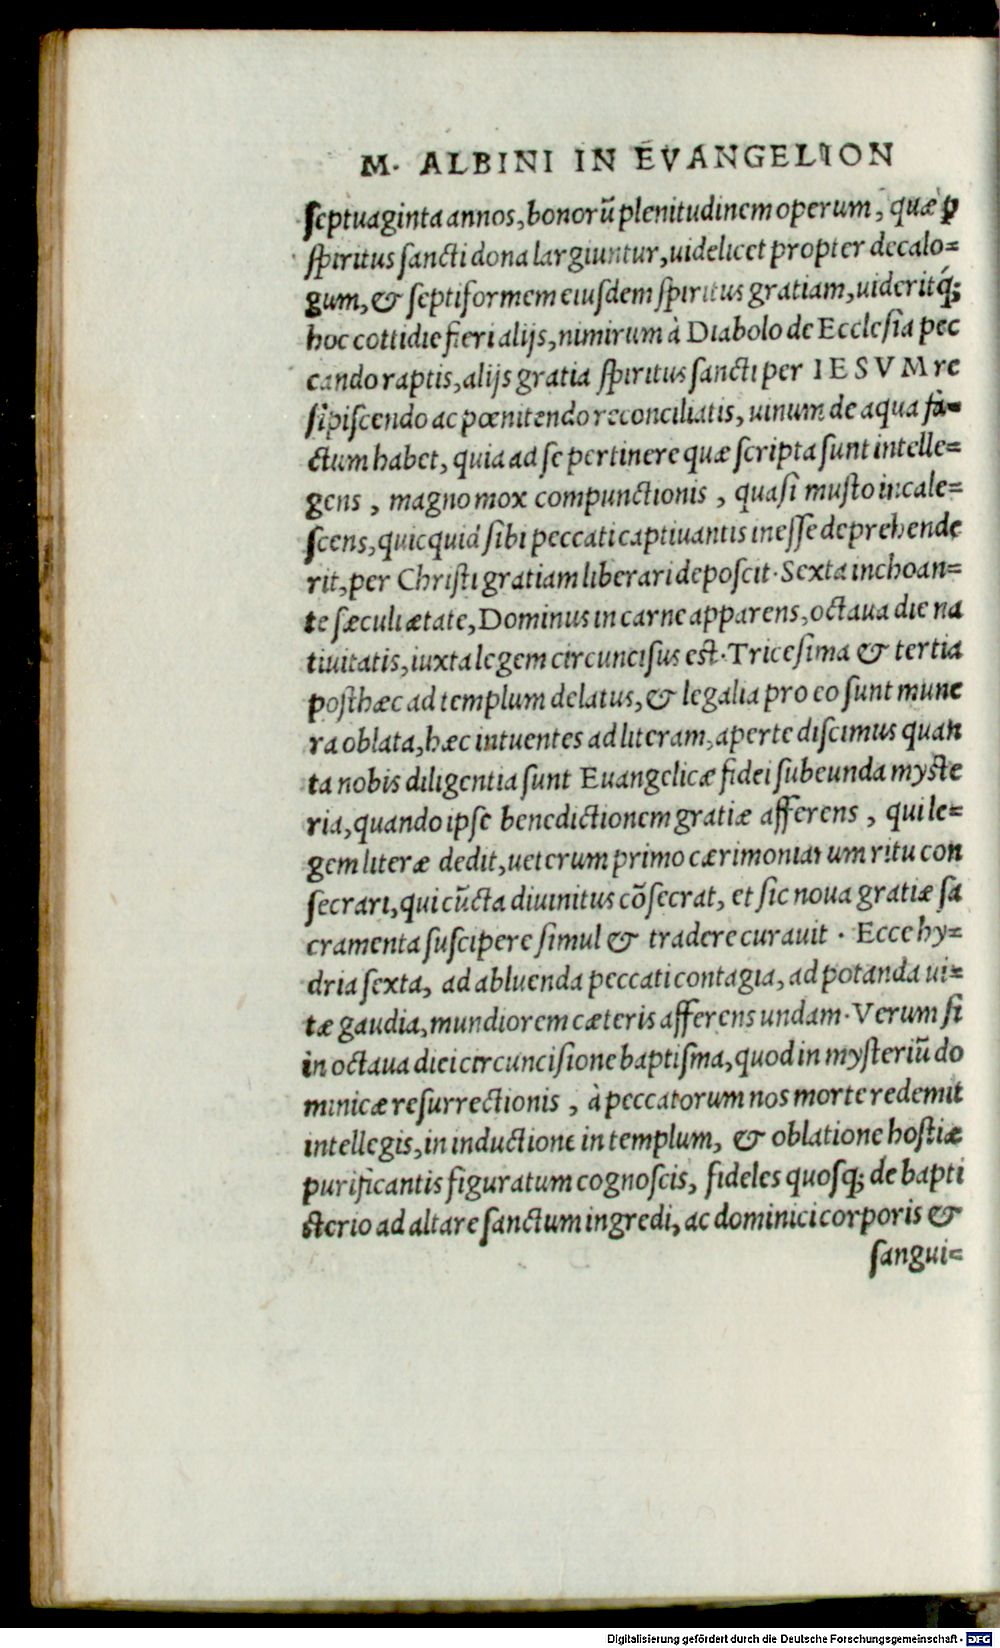 M. ALBINI IN EVANGELION
septuaginta annos, bonorū plenitudinem operum, quæ ꝑ
spiritus sancti dona largiuntur, uidelicet propter decalo=
gum, & septiformem eiusdem spiritus gratiam, uiderit q́;
hoc cottidie fieri alijs, nimirum à Diabolo de Ecclesia pec
cando raptis, alijs gratia spiritus sancti per IESVM re
sipiscendo ac pœnitendo reconciliatis, uinum de aqua fa=
ctum habet, quia ad se pertinere quæ scripta sunt intelle=
gens, magno mox compunctionis, quasi musto incale=
scens, quicquid sibi peccati captiuantis inesse deprehende
rit, per Christi gratiam liberari deposcit. Sexta inchoan=
te sæculi ætate, Dominus in carne apparens, octaua die na
tiuitatis, iuxta legem circuncisus est. Tricesima & tertia
post hæc ad templum delatus, & legalia pro eo sunt mune
ra oblata, hæc intuentes ad literam, aperte discimus quan
ta nobis diligentia sunt Euangelicæ fidei subeunda myste
ria, quando ipse benedictionem gratiæ afferens, qui le=
gem literæ dedit, ueterum primo cærimoniarum ritu con
secrari, qui cūcta diuinitus cōsecrat, et sic noua gratiæ sa
cramenta suscipere simul & tradere curauit. Ecce hy=
dria sexta, ad abluenda peccati contagia, ad potanda ui=
tæ gaudia, mundiorem cæteris afferens undam. Verum si
in octaua diei circuncisione baptisma, quod in mysteriū do
minicæ resurrectionis, à peccatorum nos morte redemit
intellegis, in inductione in templum, & oblatione hostiæ
purificantis figuratum cognoscis, fideles quosq; de bapti
sterio ad altare sanctum ingredi, ac dominici corporis &
sangui=
Digitalisierung gefördert durch die Deutsche Forschungsgemeinschaft - DFG